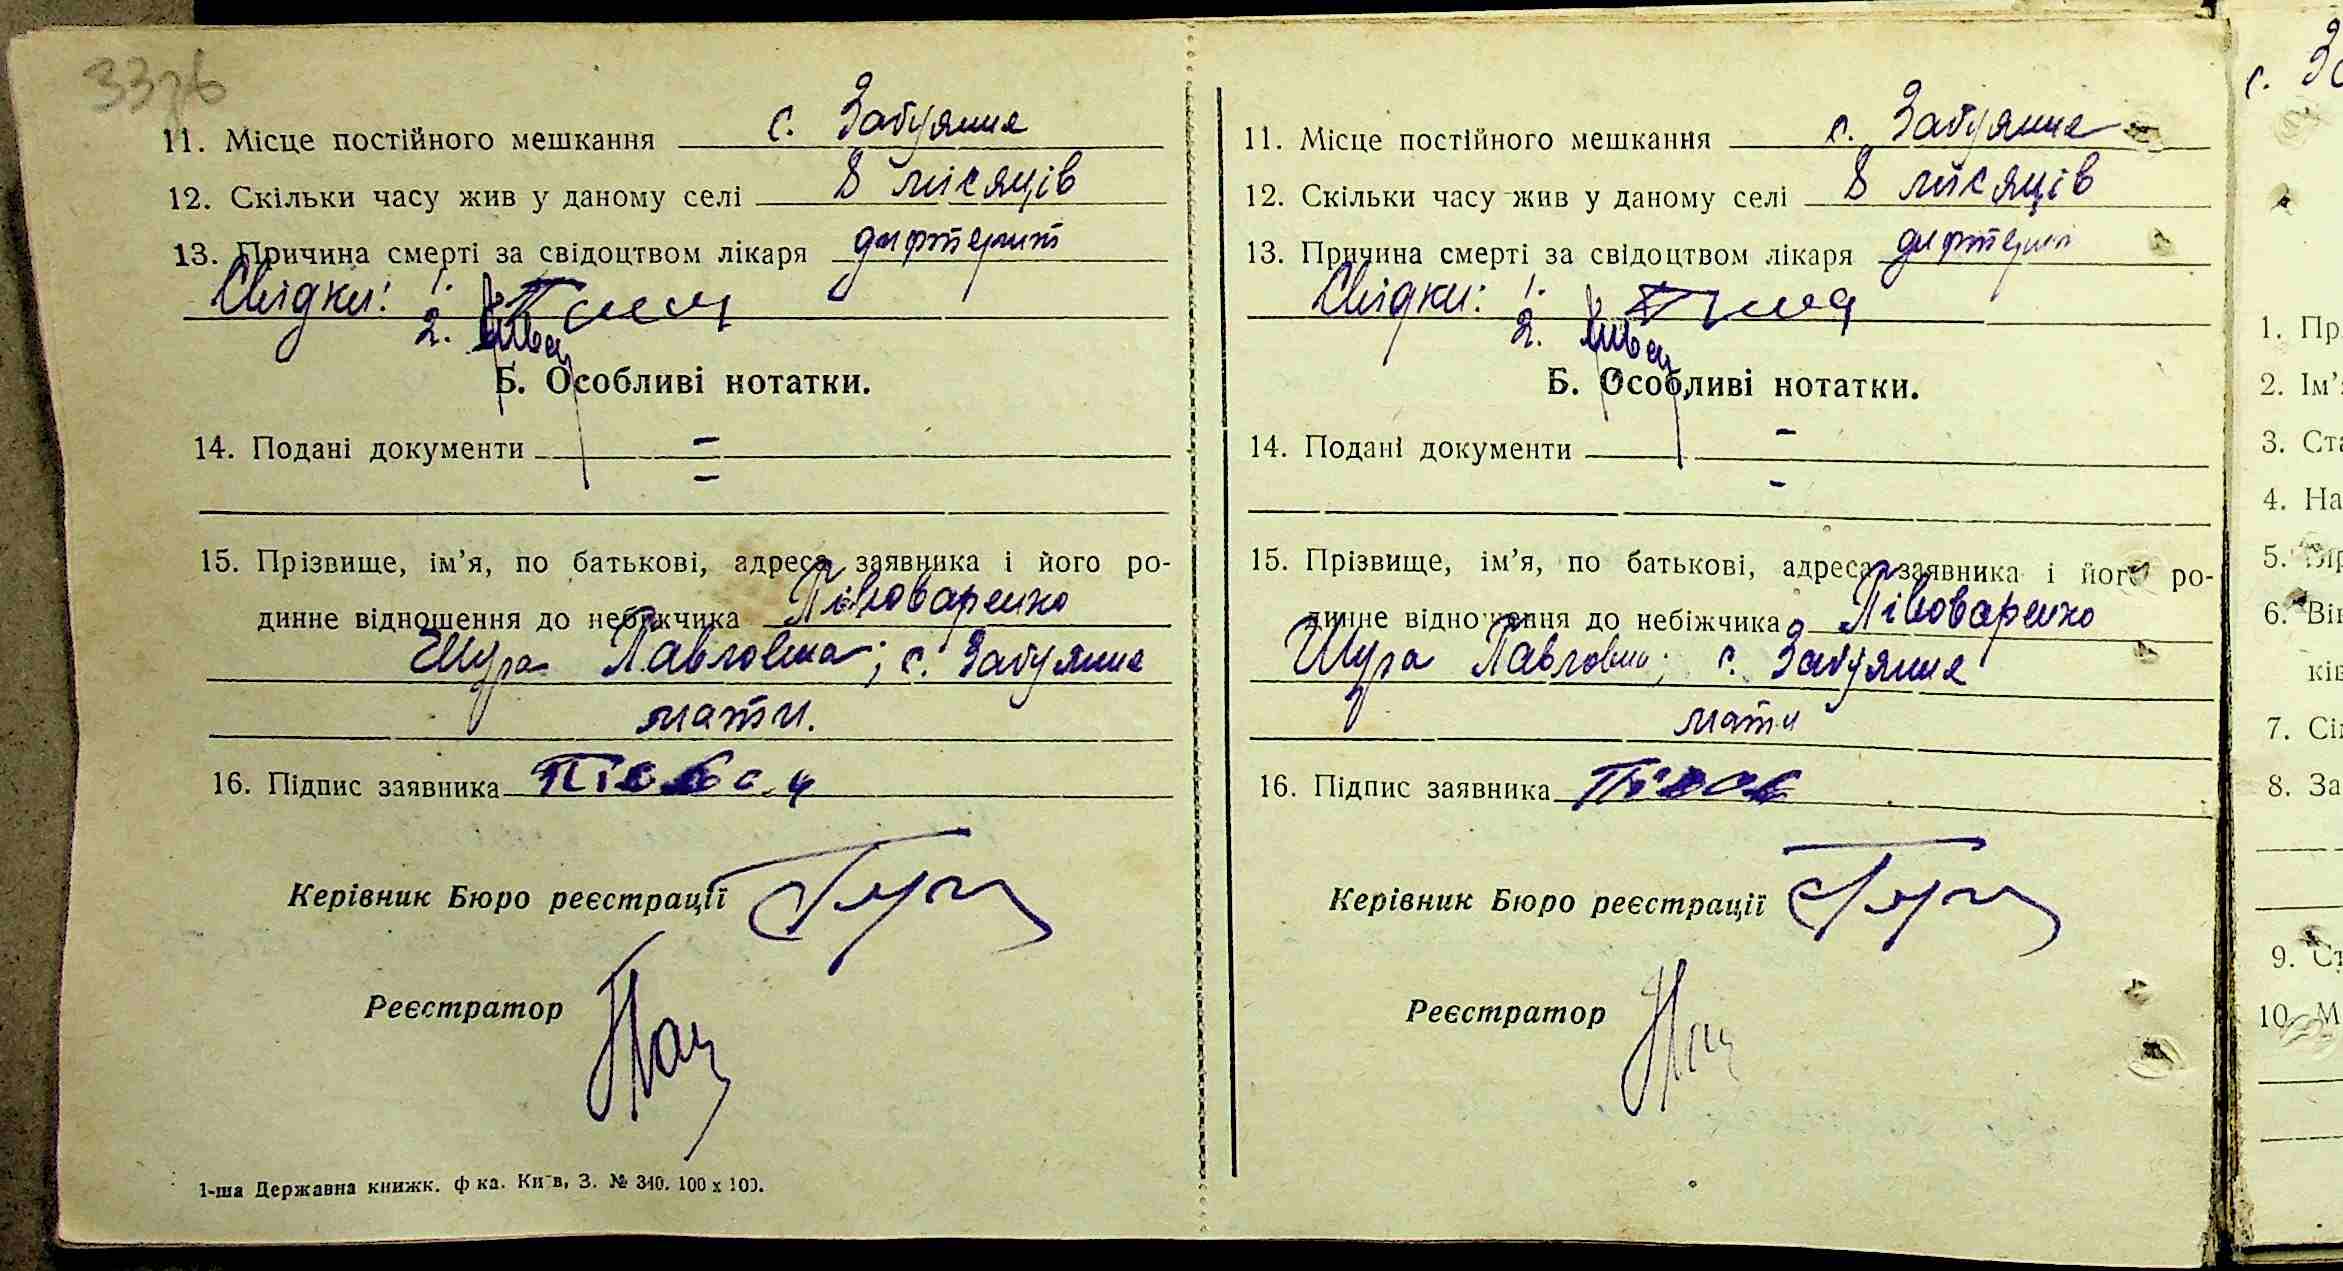 33зв
11. Місце постійного мешкання с. Забуяння
12. Скільки часу жив у даному селі 8 місяців
13. Причина смерті за свідоцтвом лікаря дифтерит
Свідки: 1.
2.
Б. Особливі нотатки.
14. Подані документи =
15. Прізвище, ім’я, по батькові, адреса заявника і його ро-
динне відношення до небіжчика Півоваренко
Шура Павловна; с. Забуяння
мати.
16. Підпис заявника
Керівник Бюро реєстрації
Реєстратор
1-ша Державна книжк. ф ка. Київ, З. № 340. 100 х 100.
11. Місце постійного мешкання с. Забуяння
12. Скільки часу жив у даному селі 8 місяців
13. Причина смерті за свідоцтвом лікаря дифтерит
Свідки: 1.
2.
Б. Особливі нотатки.
14. Подані документи =
15. Прізвище, ім’я, по батькові, адреса заявника і його ро-
динне відношення до небіжчика Півоваренко
Шура Павловна; с. Забуяння
мати
16. Підпис заявника
Керівник Бюро реєстрації
Реєстратор
с. За
1. Пр
2. Ім’
3. Ста
4. На
5.
6. Він
ків
7. Сі
8. За
9. Ст
10. М